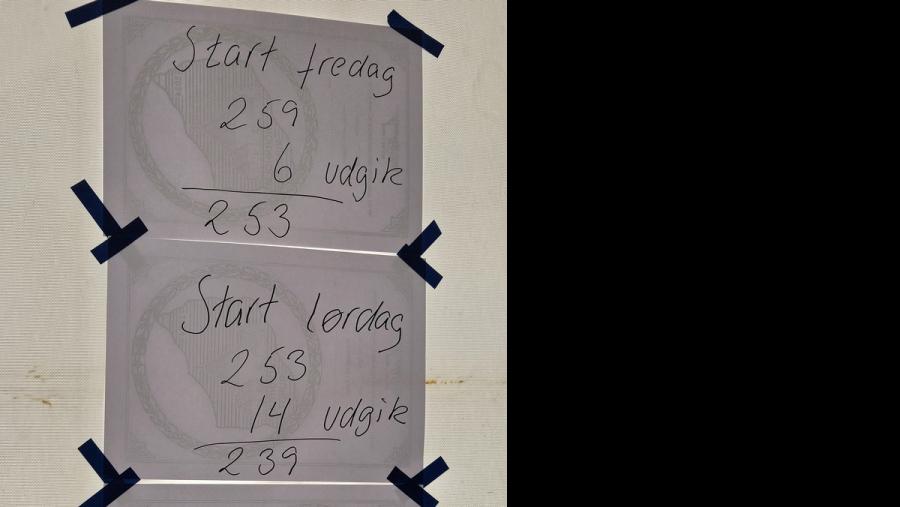 Start fredag
259
6 udgik
253
Start lørdag
253
14 udgik
239